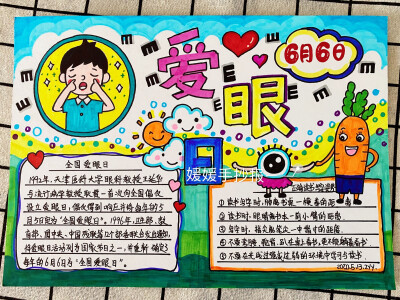 爱眼
6月6日
媛媛手抄报
全国爱眼日
1992年,天津医科大学眼科教授王延华
与流行病学教授耿贯一首次向全国倡议
设立爱眼日,倡议得到响应并将每年的5
月5日定为“全国爱眼日”。1996年,卫生部、教
育部、团中央、中国残联等12个部委联合发出通知
将爱眼日活动列为国家节日之一,并重新确定
每年的6月6日为“全国爱眼日”。
①读书写字时,胸离书桌一横拳的距离。
②读书时,眼睛离书本一
③写字时,指尖离笔尖一寸的距离。
④不要走路、躺着、趴在桌上看书,更不能躺着看书。
⑤不要在光线过强或过弱的环境中写字与读书。